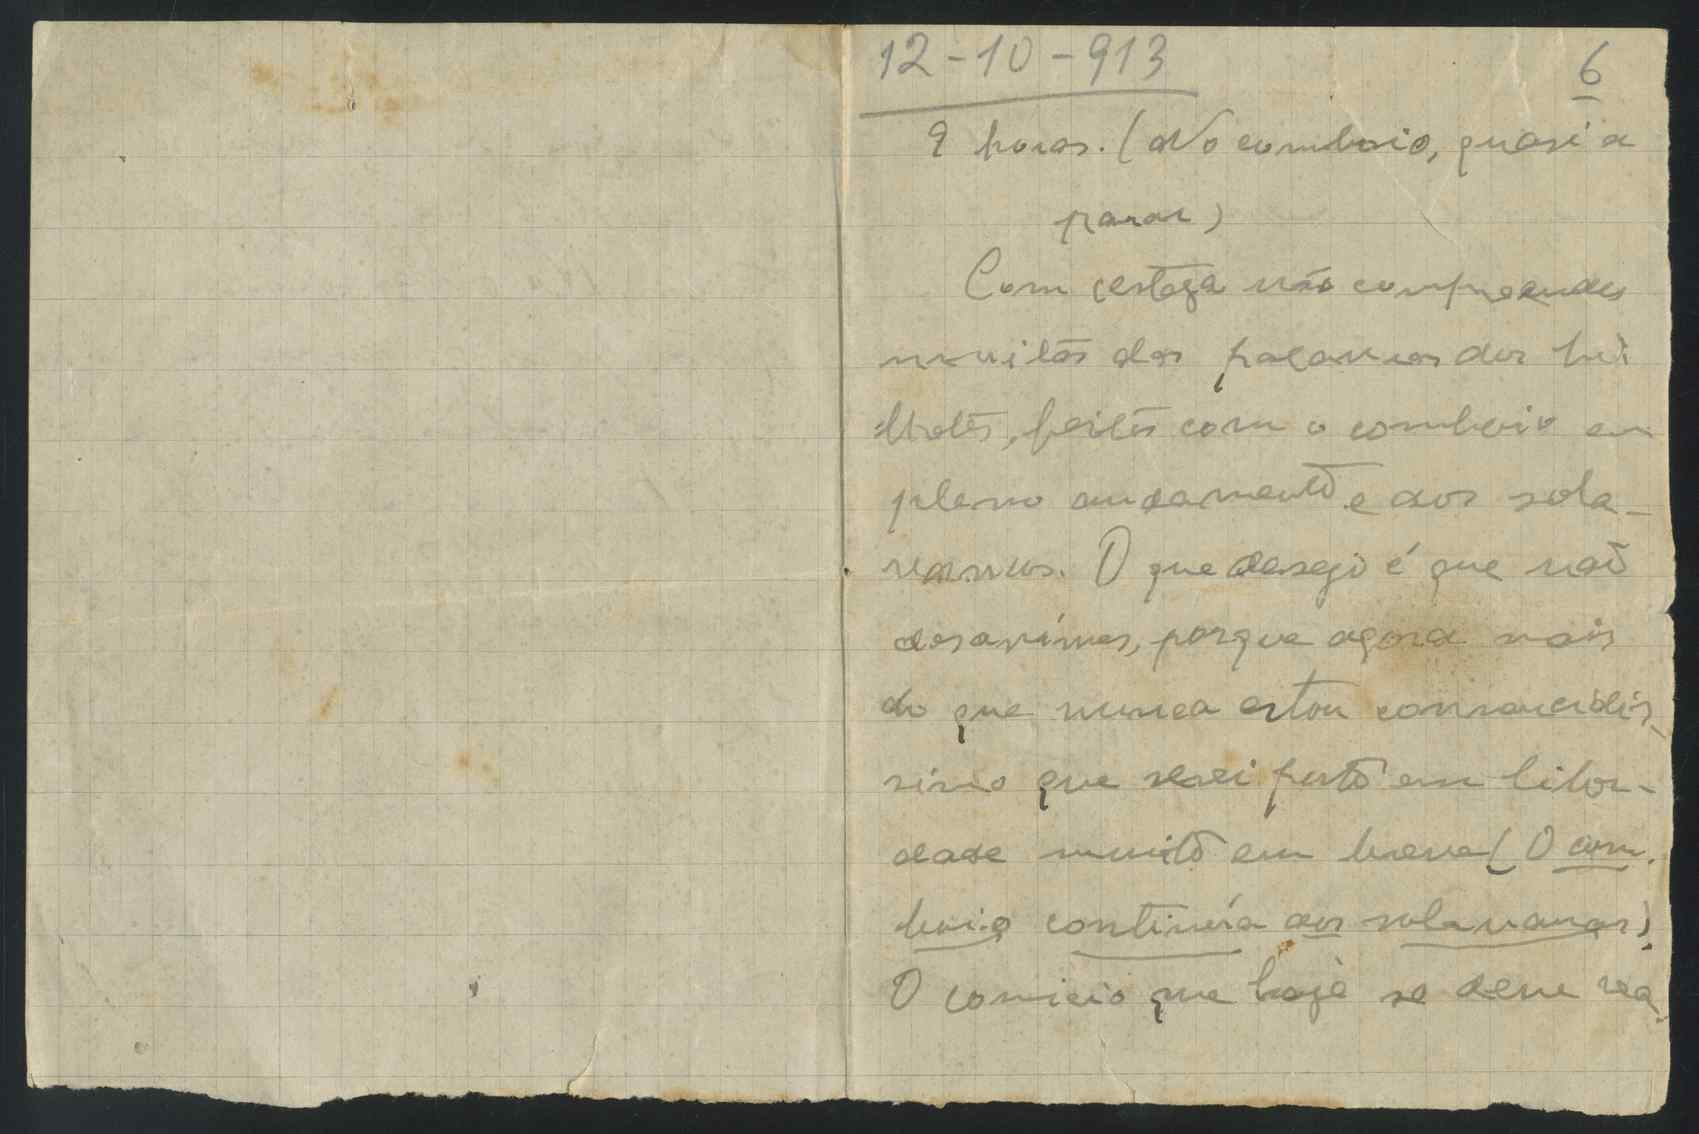 12-10-913
6
9 horas. (No comboio, quasi a
parar)
Com certeza não compreendes
muitas das palavras dos bi
lhetes, feitos com o comboio em
pleno andamento e aos sola-
vancos. O que desejo é que não
desanimes, porque agora mais
do que nunca estou convencidis-
simo que serei posto em liber-
dade muito em breve (O com-
boio continúa aos solavancos)
O comicio que hoje se deve rea-